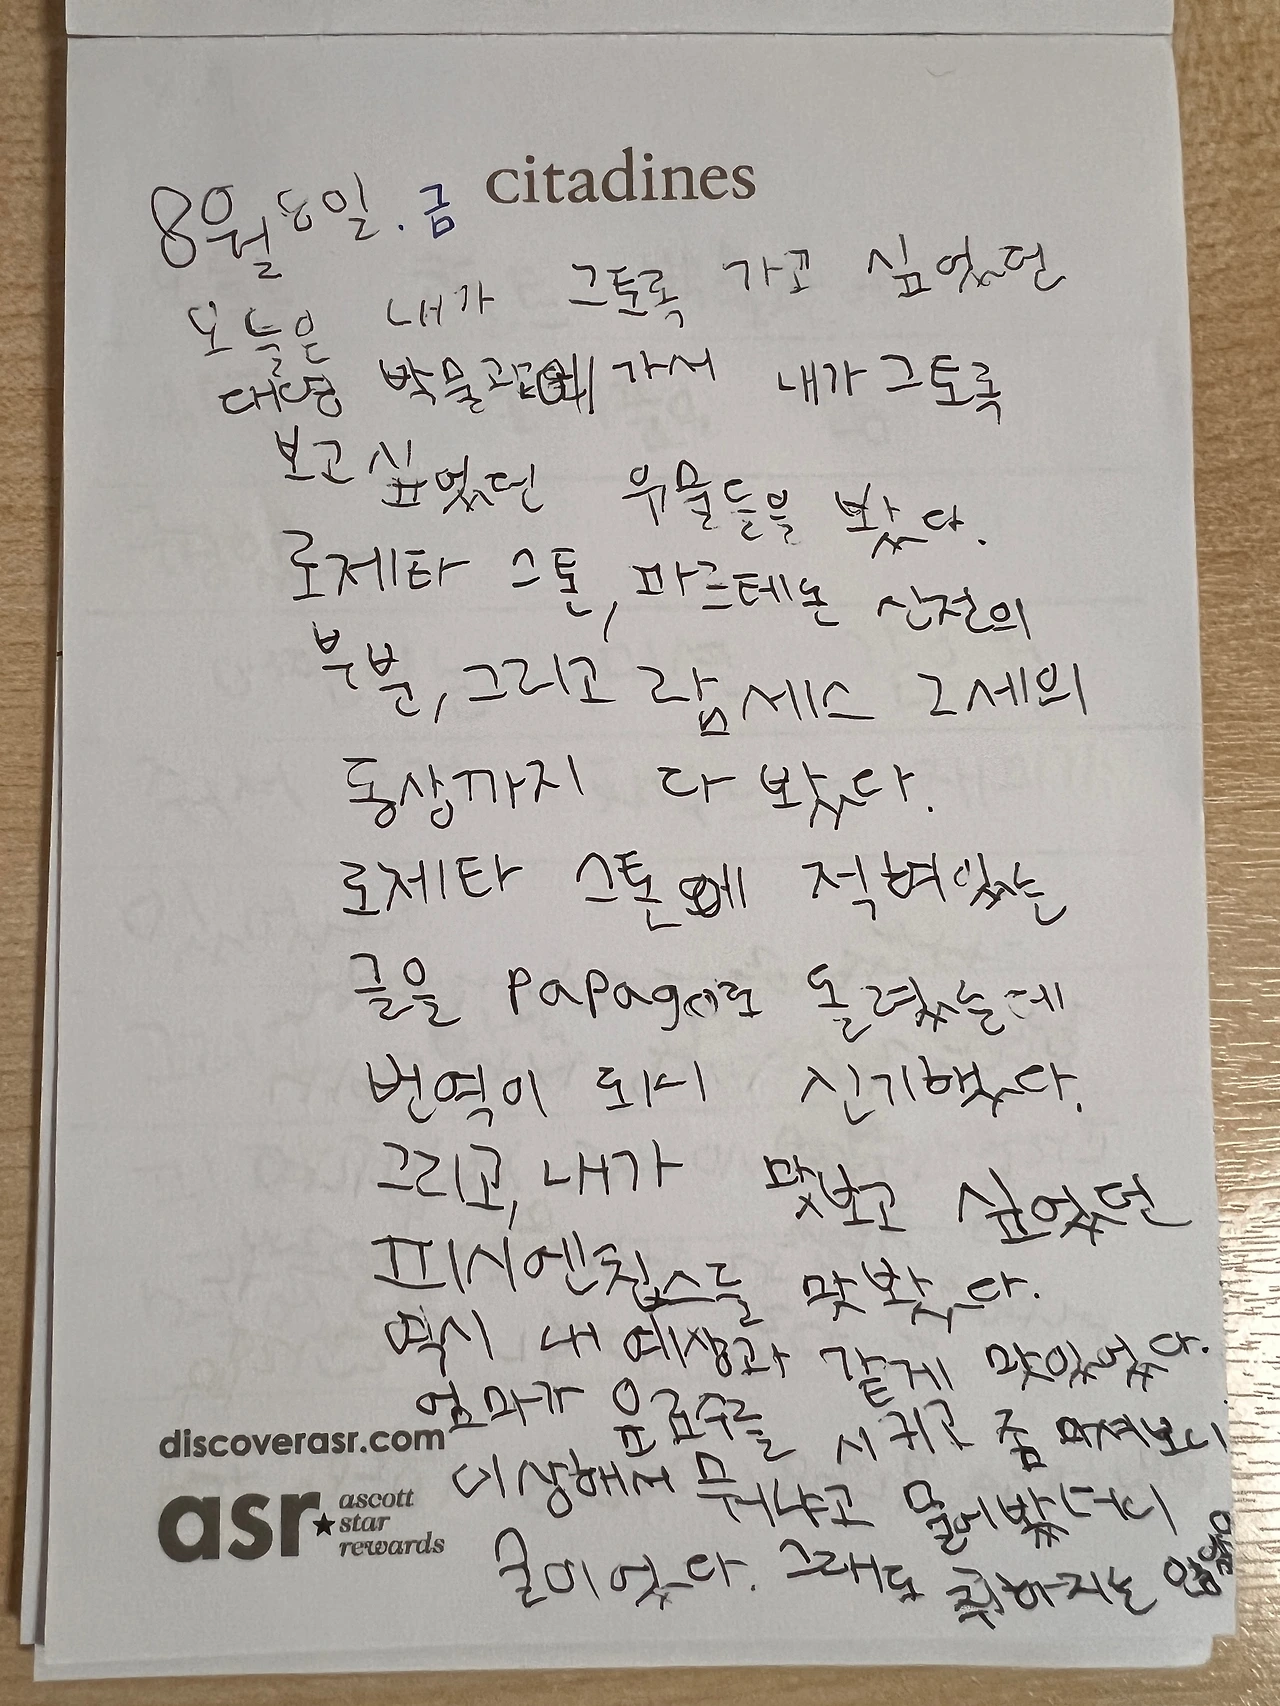 citadines
8월 8일. 금
오늘은 내가 그토록 가고 싶었던
대영 박물관에 가서 내가 그토록
보고 싶었던 유물들을 봤다.
로제타 스톤, 파르테논 신전의
부분, 그리고 람세스 2세의
동상까지 다 봤다.
로제타 스톤에 적혀있는
글을 papago로 돌렸는데
번역이 되니 신기했다.
그리고, 내가 맛보고 싶었던
피시엔칩스를 맛봤다.
역시 내 예상과 같게 맛있었다.
엄마가 음료수를 시키고 좀 마셔보니
이상해서 뭐냐고 물어봤더니
술이었다. 그래도 취하지는
discoverasr.com
asr ascott
star
rewards